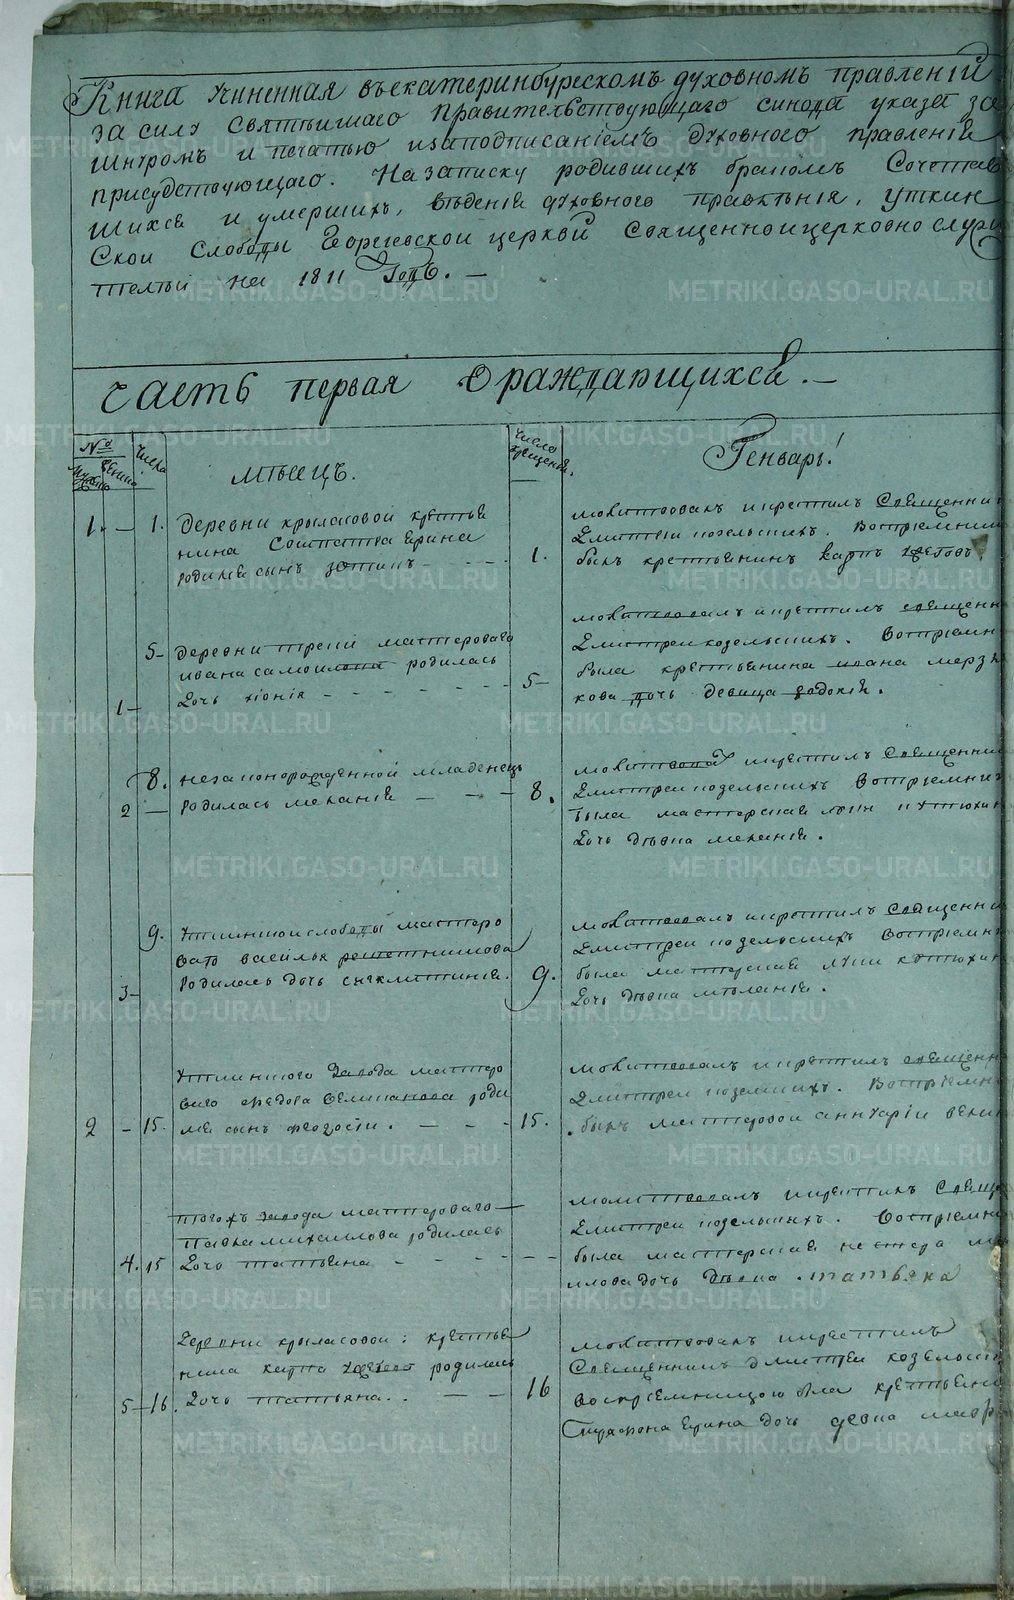 Книга учиненная въ екатеринбургскомъ духовномъ правленій
за силу святѣйшаго правительствующаго синода указа за
шнуромъ и печатью и за подписаніемъ духовного правленія
присудствующаго. На записку родившихъ бракомъ Сочетав
шихся и умершихъ, вѣденія духовного правленія, уткин
ской слободы Георгіевской церкви священно и церковно служи
телѣй на 1811 Годъ. —
Часть первая О раждающихся. —
№
Числа
МѢСЕЦЪ.
Число крещенія.
Генварь!
1. — 1. деревни крыласовой крестья
нина
родился сынъ
1.
молитвовалъ и крестилъ Священни
Дмитрей козельскихъ. Воспріемник
былъ крестьянинъ карпъ
5 — деревни треки мастероваго
ивана самоилова родилась
1 — Дочь хіонія
5 —
молитвовалъ и крестилъ священн
Дмитреи козельскихъ. Воспріемн
была крестьянина ивана мерзл
кова дочь девица
8. незаконорожденной младенецъ
2 — родилась меланія
8.
молитвовалъ и крестилъ Священни
Дмитреи козельскихъ Воспріемни
была мастерская луки
дочь дѣвка меланія.
9. Уткинской слободы мастеро
ваго василья решетникова
3 — родилась дочь синклитикія.
9.
молитвовалъ и крестилъ Священни
Дмитреи козельскихъ Воспріемн
была мастерская луки
дочь дѣвка мѣланія.
Уткинского Завода мастеро
ваго федора селиванова роди
2 — 15. лся сынъ феодосіи.
15.
молитвовалъ и крестилъ священн
Дмитреи козелских. Воспріемн
былъ мастеровои аннуарій
тогожъ завода мастероваго
Павла михаилова родилась
4. 15 Дочь татьяна
молитвовалъ и крестилъ Свеще
Дмитреи козельских. Воспріемн
была мастерская нестера ми
илова дочь дѣвка татьяна
Деревни крыласовой: крестья
нина карпа родилась
5 — 16. Дочь татьяна.
16
молитвовалъ и крестилъ
Священникъ дмитреи козельски
воспріемницою была крестьяни
дочь девка мавр
METRIKI.GASO-URAL.RU